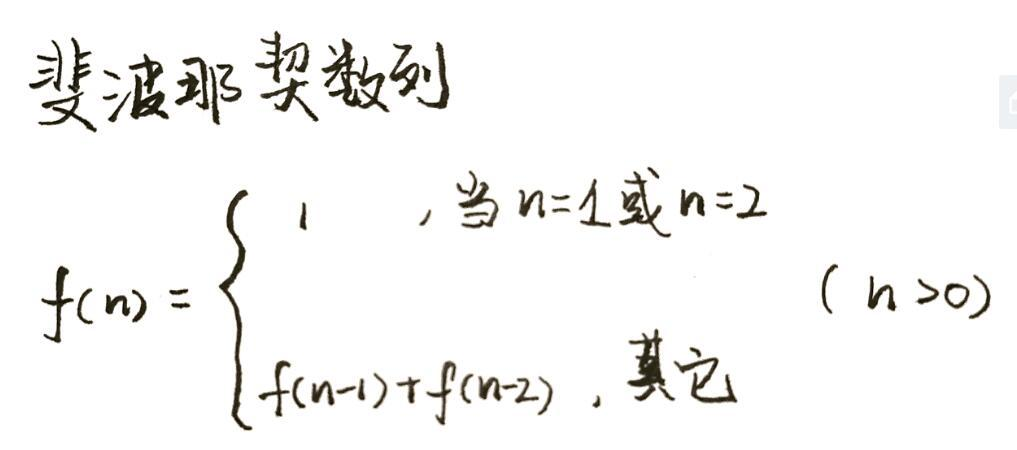 斐波那契数列
1 , 当 n=1 或 n=2
f(n) = { (n>0)
f(n-1)+f(n-2) , 其它